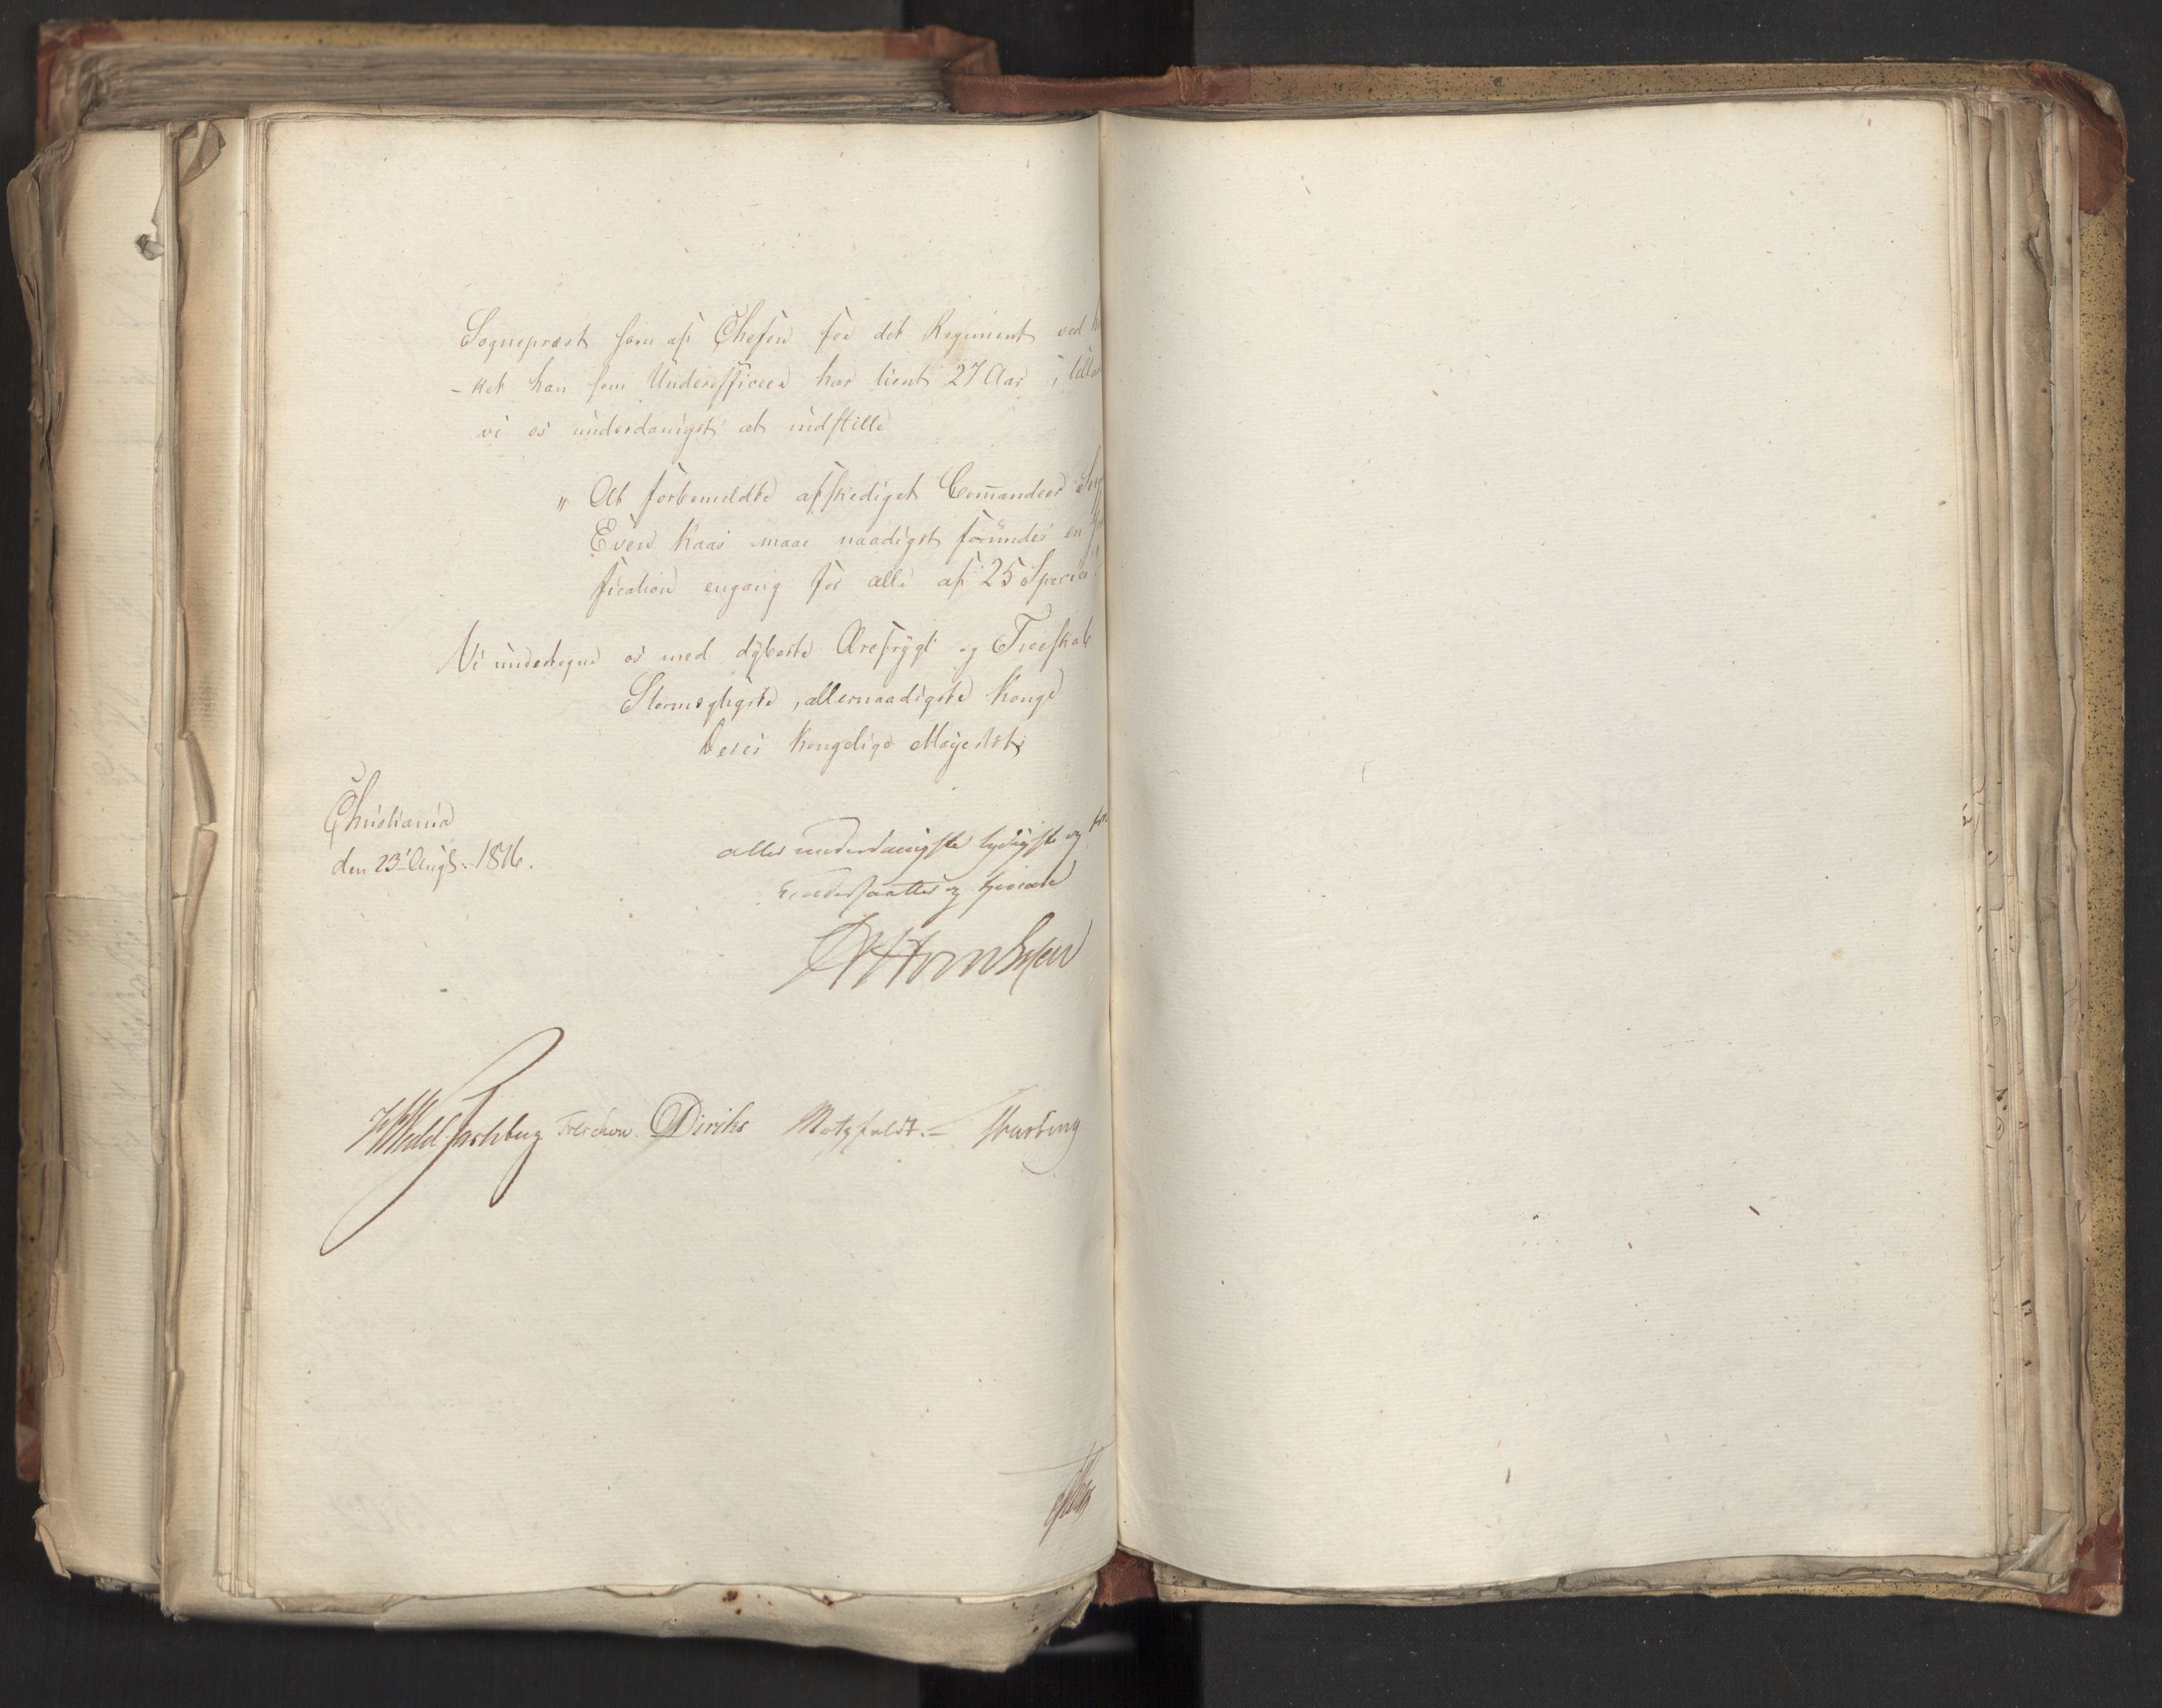 Sognepræst som af Chefen for det Regiment ved
-ket han som Underofficeer har tient 27 Aar, tillad
vi os underdanigst at indstille
„ At forbemeldte afskediget Com̄andeer Serg
Even Kaas maae naadigst forundes en
fication engang for alle af 25 Species
Vi undertegne os med dybeste Ærefrygt og Troeskab
Stormægtigste, allernaadigste Konge
Deres Kongelige Majestæts
Christiania
den 23de Augt: 1816.
aller underdanigste lydigste og
Undersaatter og tienere
Wedel Jarlsberg Treschow. Diriks Motzfeldt.